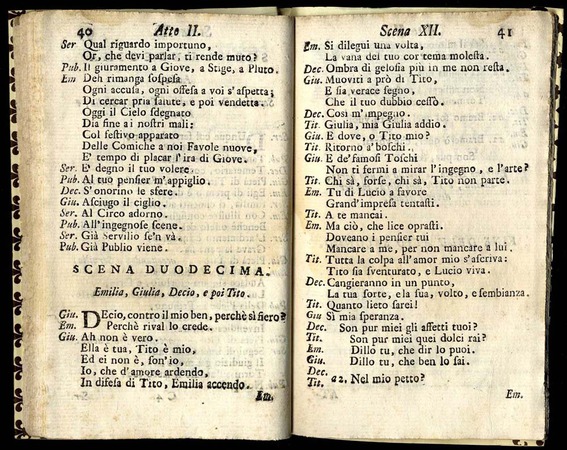 40 Atto II.
Ser Qual riguardo importuno,
Or, che devi parlar, ti rende muto?
Pub. Il giuramento a Giove, a Stige, a Pluto.
Em Deh rimanga sospesa
Ogni accusa, ogni offesa a voi s'aspetta;
Di cercar pria salute, e poi vendetta.
Oggi il Cielo sdegnato
Dia fine a i nostri mali:
Col festivo apparato
Delle Comiche a noi Favole nuove,
E' tempo di placar l'ira di Giove.
Ser. E' degno il tuo volere.
Pub. Al tuo pensier m'appiglio.
Dec. S'onorino le sfere.
Giu. Asciugo il ciglio.
Ser. Al Circo adorno.
Pub. All'ingegnose scene.
Ser. Già Servilio se'n va.
Pub. Già Publio viene.
SCENA DUODECIMA.
Emilia, Giulia, Decio, e poi Tito.
Giu. DEcio, contro il mio ben, perchè sì fiero?
Em. Perchè rival lo crede.
Giu. Ah non è vero.
Ella è tua, Tito è mio,
Ed ei non è, son'io,
Io, che d'amore ardendo,
In difesa di Tito, Emilia accendo.
Em.
Scena XII. 41
Em. Si dilegui una volta,
La vana del tuo cor tema molesta.
Dec. Ombra di gelosia più in me non resta.
Giu. Muoviti a prò di Tito,
E sia verace segno,
Che il tuo dubbio cessò.
Dec. Così m'impegno.
Tit. Giulia, mia Giulia addio.
Giu. E dove, o Tito mio?
Tit. Ritorno a'boschi..
Giu. E de'famosi Toschi
Non ti fermi a mirar l'ingegno, e l'arte?
Tit. Chi sà, forse, chi sà, Tito non parte.
Em. Tu di Lucio a favore
Grand'impresa tentasti.
Tit. A te mancai.
Em. Ma ciò, che lice oprasti.
Doveano i pensier tui
Mancare a me, per non mancare a lui.
Tit. Tutta la colpa all'amor mio s'ascriva:
Tito sia sventurato, e Lucio viva.
Dec. Cangieranno in un punto,
La tua sorte, e la sua, volto, e sembianza.
Tit. Quanto lieto sarei!
Giu Sì mia speranza.
Dec. Son pur miei gli affetti tuoi?
Tit. Son pur miei quei dolci rai?
Em. Dillo tu, che dir lo puoi.
Giu. Dillo tu, che ben lo sai.
Dec.
Tit. a 2. Nel mio petto?
Em.